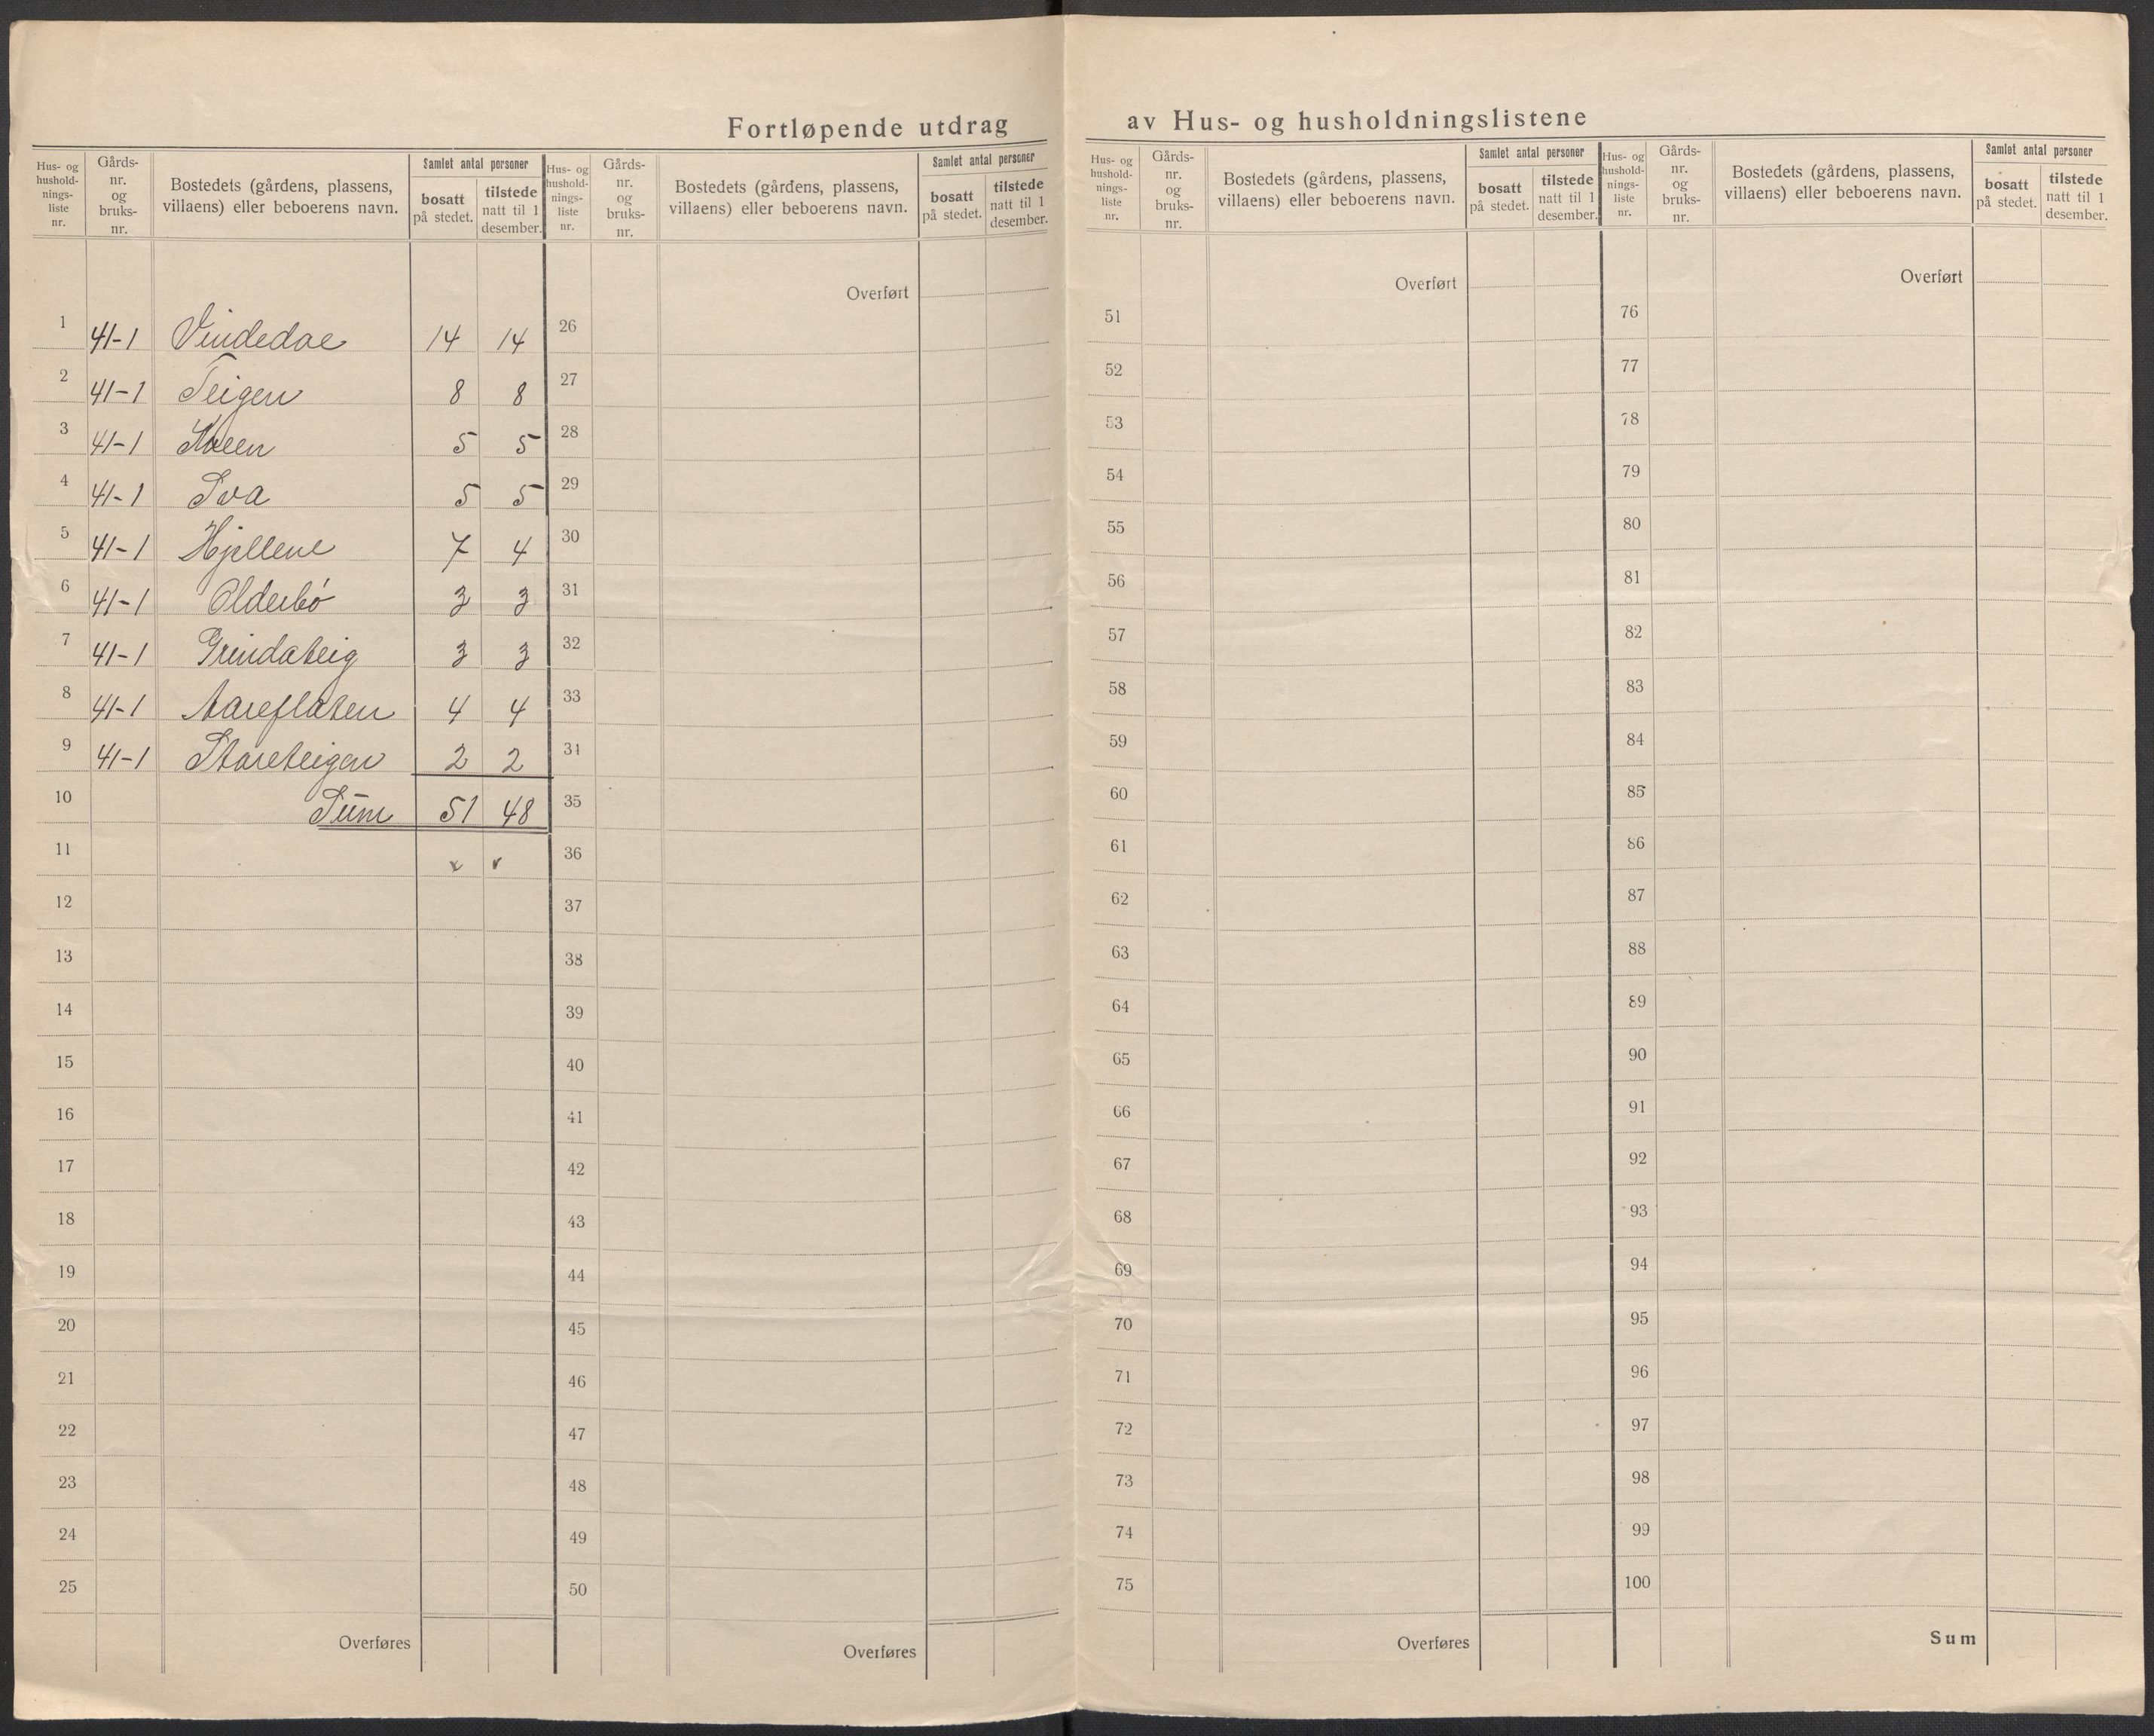 Fortløpende utdrag av Hus- og husholdningslistene
Hus- og hushold-nings-liste nr. | Gårds-nr. og bruks-nr. | Bostedets (gårdens, plassens, villaens) eller beboerens navn. | Samlet antal personer | bosatt på stedet. | tilstede natt til 1 desember.
1 41-1 Vindedae 14 14
2 41-1 Teigen 8 8
3 41-1 5 5
4 41-1 Sva 5 5
5 41-1 Hjellene 7 4
6 41-1 Olderbó 3 3
7 41-1 Grindateig 3 3
8 41-1 Aareflaten 4 4
9 41-1 Stareteigen 2 2
10 Sum 51 48
11
12
13
14
15
16
17
18
19
20
21
22
23
24
25
Overføres
Hus- og hushold-nings-liste nr. | Gårds-nr. og bruks-nr. | Bostedets (gårdens, plassens, villaens) eller beboerens navn. | Samlet antal personer | bosatt på stedet. | tilstede natt til 1 desember.
Overført
26
27
28
29
30
31
32
33
34
35
36
37
38
39
40
41
42
43
44
45
46
47
48
49
50
Overføres
Hus- og hushold-nings-liste nr. | Gårds-nr. og bruks-nr. | Bostedets (gårdens, plassens, villaens) eller beboerens navn. | Samlet antal personer | bosatt på stedet. | tilstede natt til 1 desember.
Overført
51
52
53
54
55
56
57
58
59
60
61
62
63
64
65
66
67
68
69
70
71
72
73
74
75
Overføres
Hus- og hushold-nings-liste nr. | Gårds-nr. og bruks-nr. | Bostedets (gårdens, plassens, villaens) eller beboerens navn. | Samlet antal personer | bosatt på stedet. | tilstede natt til 1 desember.
Overført
76
77
78
79
80
81
82
83
84
85
86
87
88
89
90
91
92
93
94
95
96
97
98
99
100
Sum